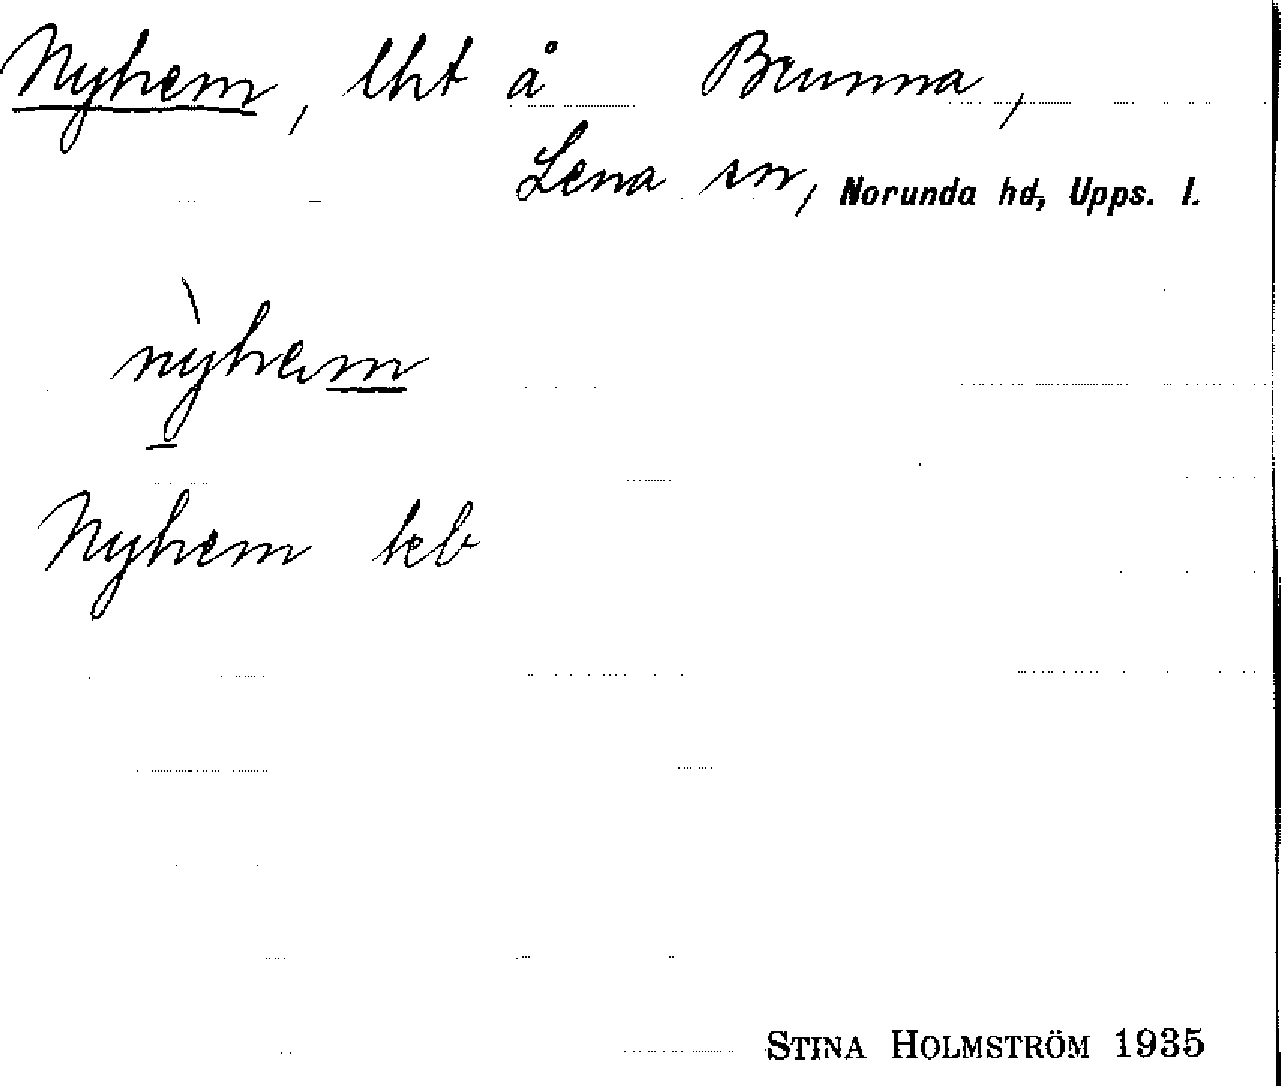 Nyhem, lht å Brunna,
Lena sn, Norunda hd, Upps. l.
nỳhem
Nyhem teb
STINA HOLMSTRÖM 1935